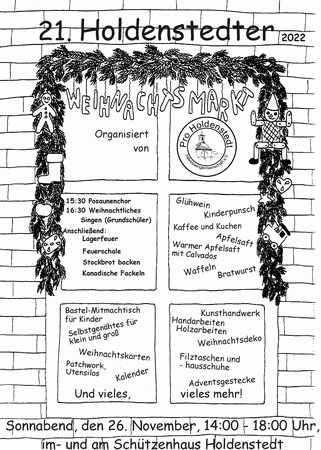 21. Holdenstedter
2022
WEIHNACHTSMARKT
Organisiert
von
Pro Holdenstedt
15:30 Posaunenchor
16:30 Weihnachtliches
Singen (Grundschüler)
Anschließend:
Lagerfeuer
Feuerschale
Stockbrot backen
Kanadische Fackeln
Glühwein
Kinderpunsch
Kaffee und Kuchen
Apfelsaft
Warmer Apfelsaft
mit Calvados
Waffeln
Bratwurst
Bastel-Mitmachtisch
für Kinder
Selbstgenähtes für
klein und groß
Weihnachtskarten
Patchwork,
Utensilos
Kalender
Und vieles,
Kunsthandwerk
Handarbeiten
Holzarbeiten
Weihnachtsdeko
Filztaschen und
- hausschuhe
Adventsgestecke
vieles mehr!
Sonnabend, den 26. November, 14:00 - 18:00 Uhr,
im- und am Schützenhaus Holdenstedt